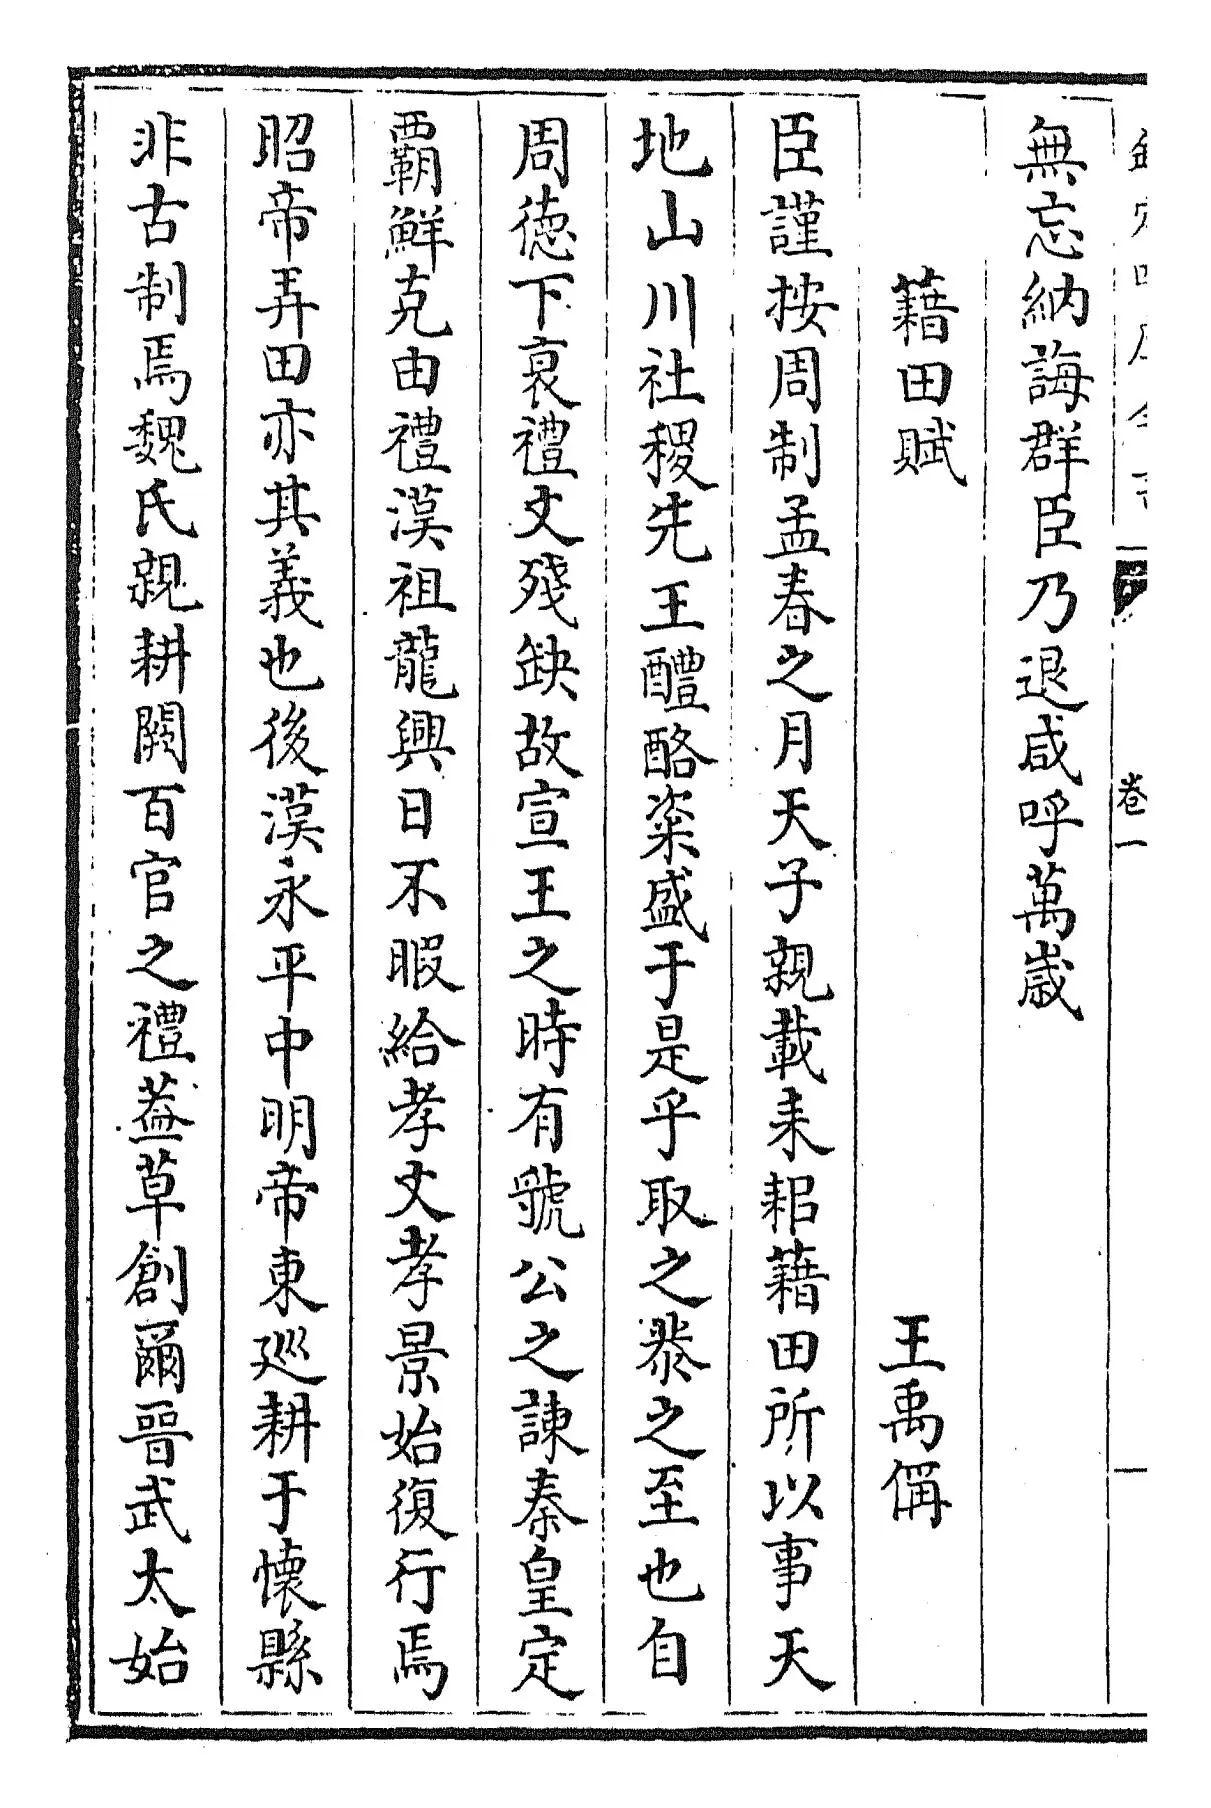 卷一
無忘納誨群臣乃退咸呼萬歲
藉田賦 王禹偁
臣謹按周制孟春之月天子親載耒耜藉田所以事天
地山川社稷先王醴酪粢盛于是乎取之恭之至也自
周德下衰禮文殘缺故宣王之時有虢公之諫秦皇定
霸鮮克由禮漢祖龍興日不暇給孝文孝景始復行焉
昭帝弄田亦其義也後漢永平中明帝東廵耕于懷縣
非古制焉魏氏親耕闕百官之禮葢草創爾晉武太始